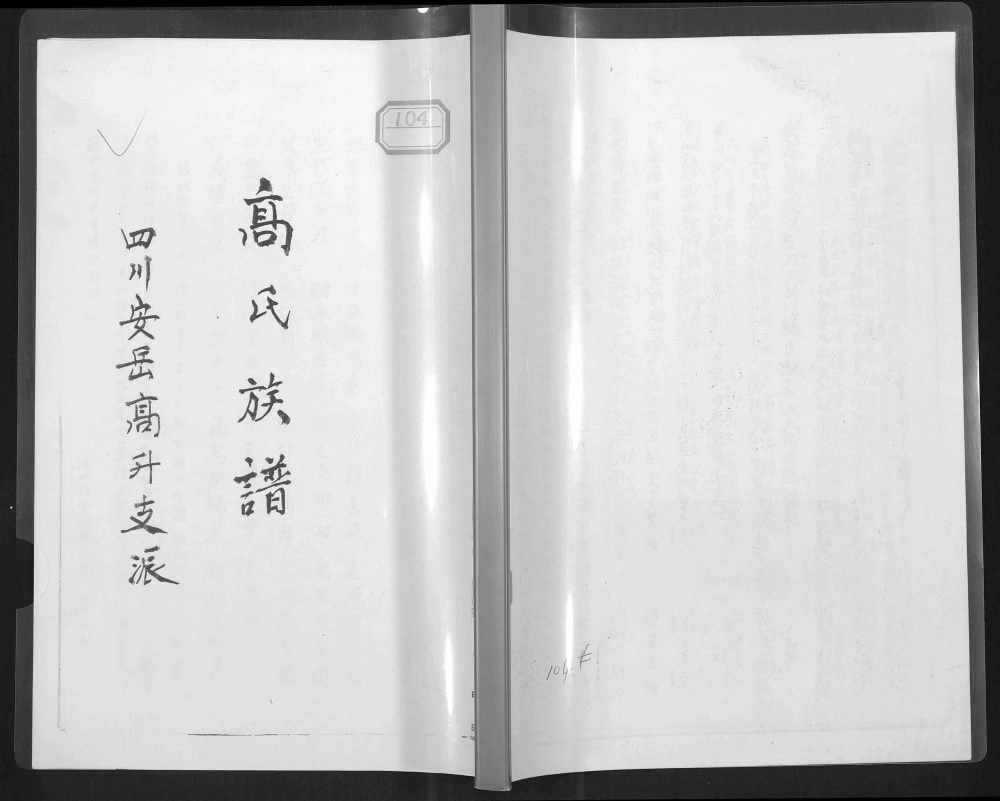 104
髙氏族譜
四川安岳髙升支派
104#